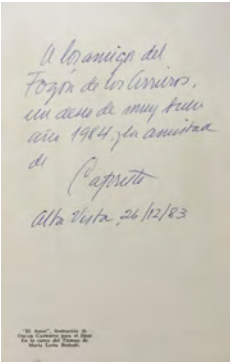 A los amigos del
Fogón de los Arrieros,
un deseo de muy buen
año 1984, y la amistad
de
Capristo
Alta Vista, 26/12/83
"El Amor", ilustración de
OSCAR CAPRISTO para el libro
En la curva del Tiempo de
María Luisa